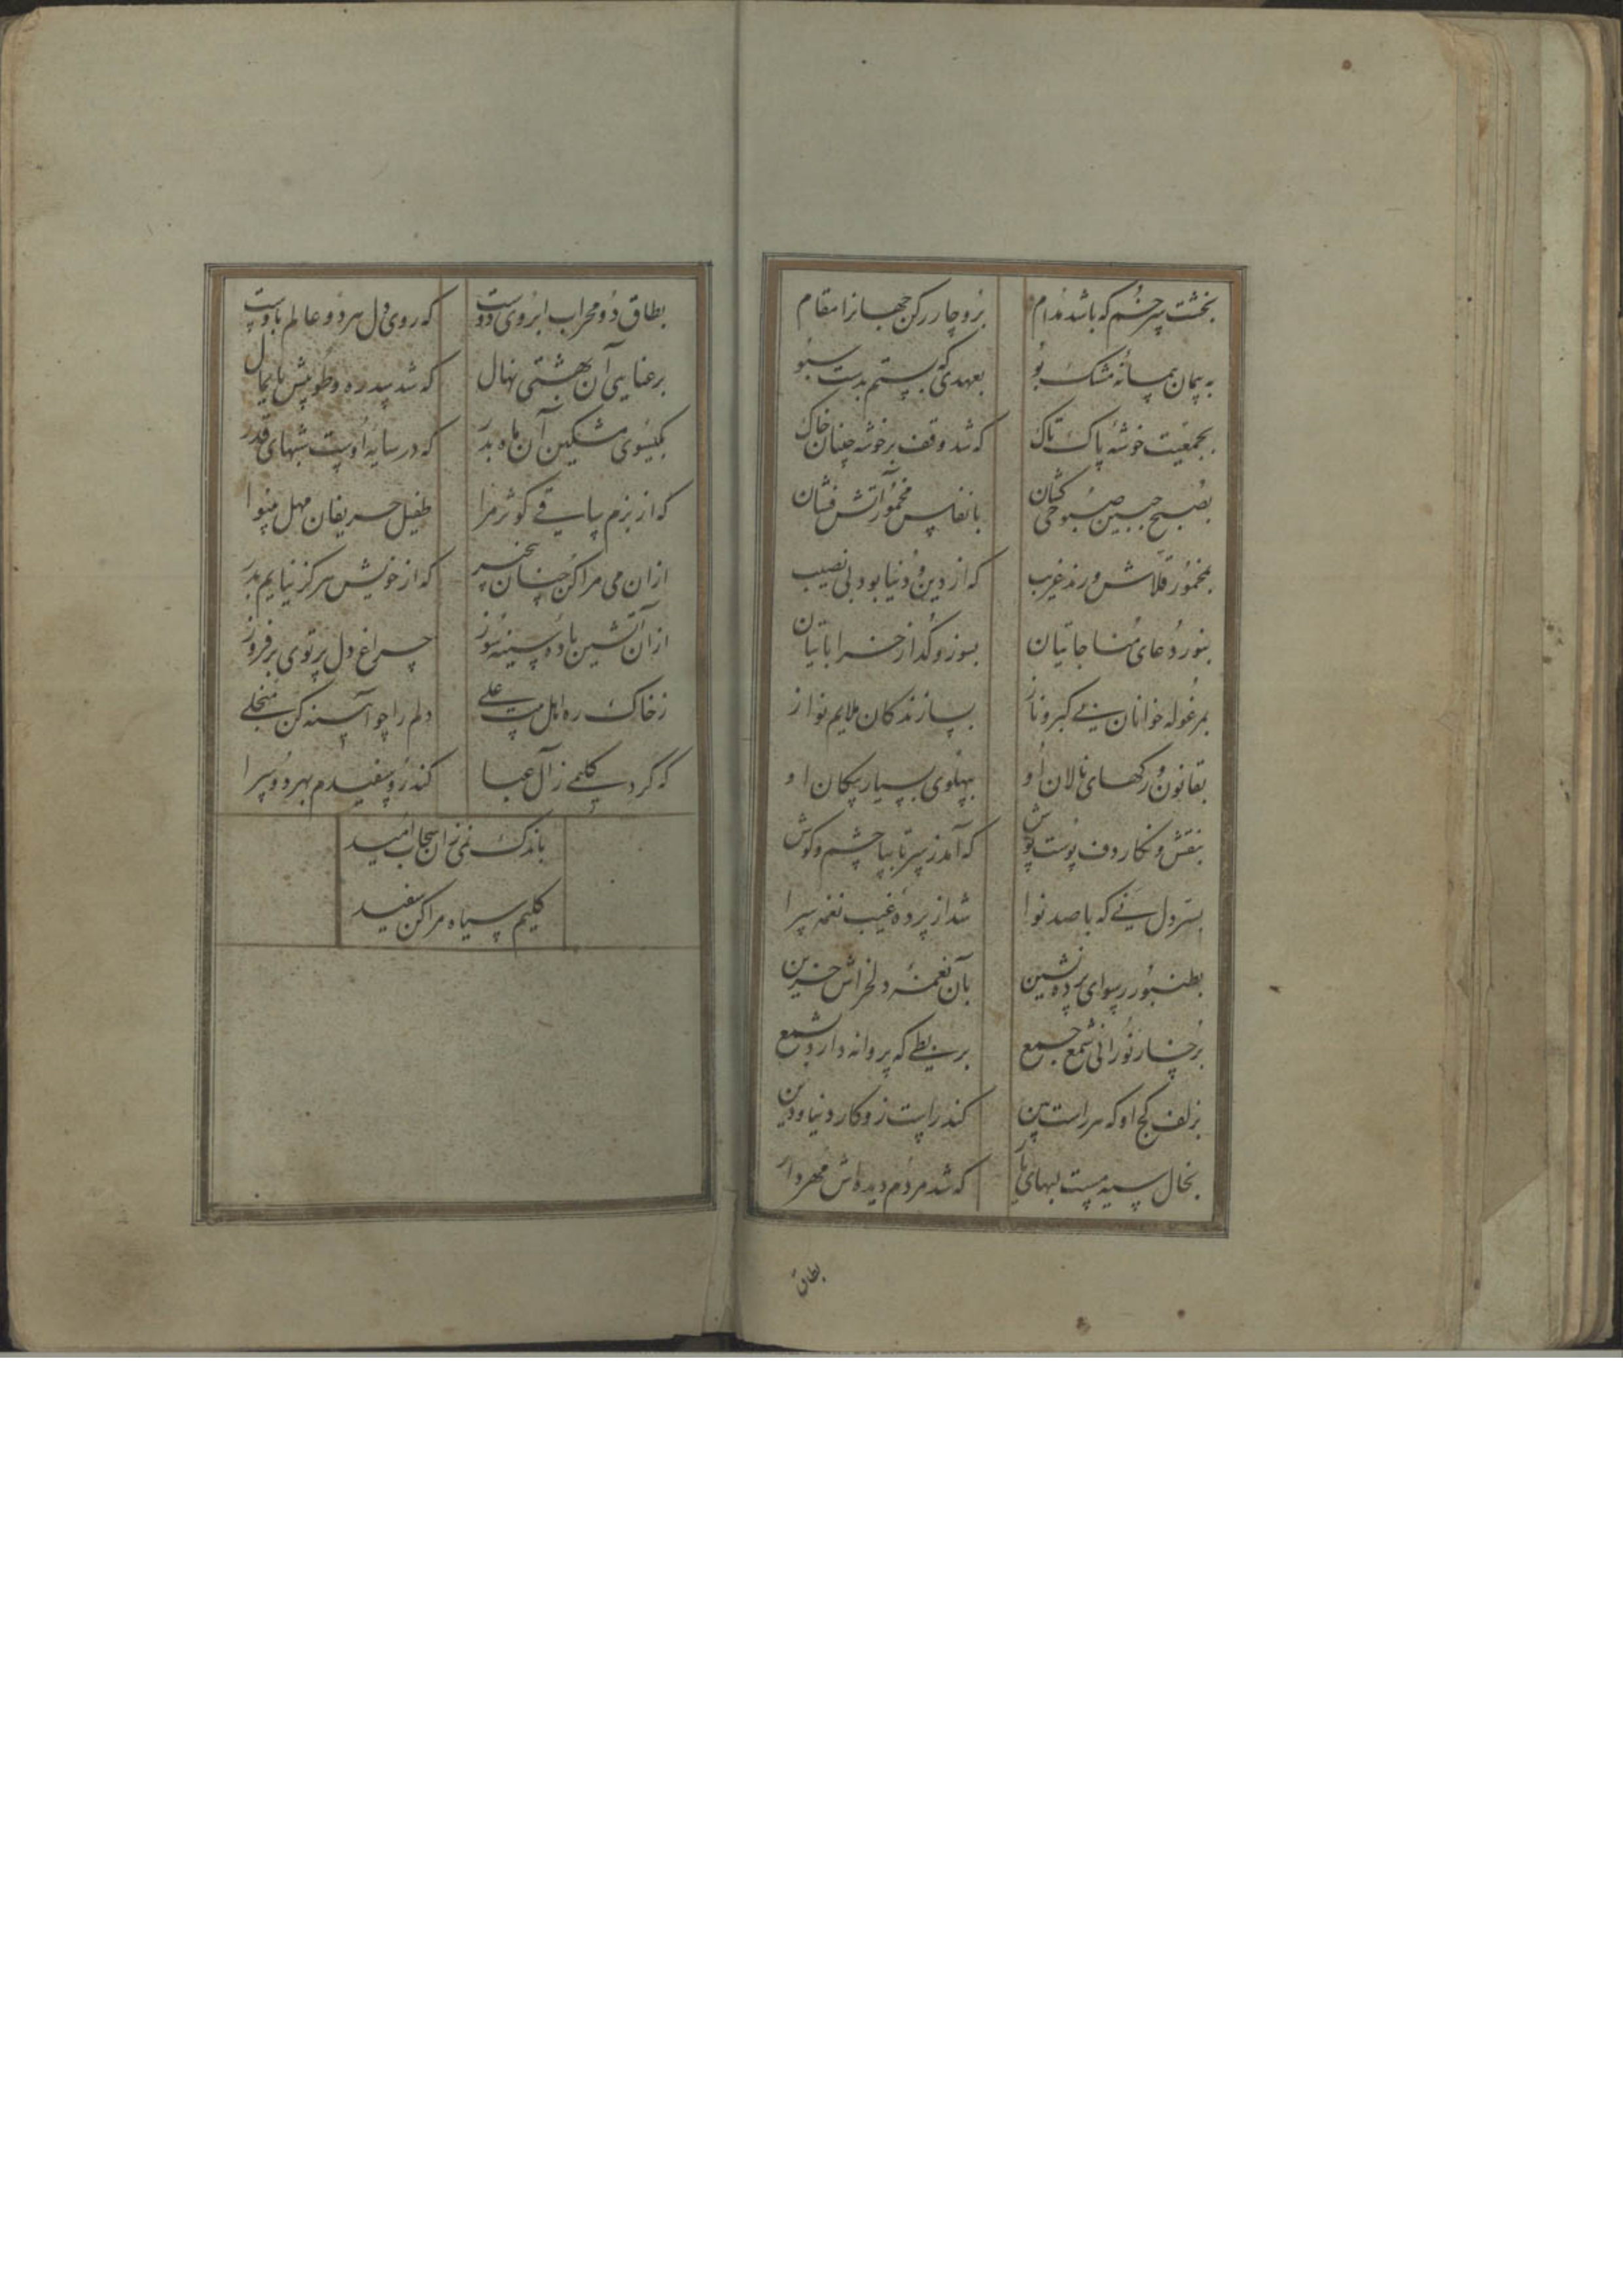 بخشت سر خم که باشد مدام بزو چار رکن جهانرا مقام
به پیمان پیمانهٔ مشک بو بعهدی که بستم بدست سبو
بجمعیت خوشهٔ پاک تاک که شد وقف بر خوشه چینان خاک
بصبح جبین صبوحی کشان بانفاس مخمور آتش فشان
بمخمور قلاش و رند غریب که از دین و دنیا بود بی نصیب
بنور دعای مناجاتیان بسوز و گداز خراباتیان
بمرغوله خوانان بی کبر و ناز بسازندکان ملایم نواز
بقانون و رکهای نالان او بپهلوی بسیار پیکان او
بنقش و نکار دف پوست پوش که آمد ز سر تا بپا چشم و کوش
بسر دل نی که با صد نوا شد از پردهٔ غیب نغمه سرا
بطنبور رسوای پرده نشین بآن نغمهٔ دلخراش حزین
برخسار نورانی شمع جمع بربطی که پروانه دارد بشمع
بزلف کج او که هر راست بین کند راست زو کار دنیا و دین
بخال سیه مست لبهای یار که شد مردم دیده‌اش مهردار
بطاق
بطاق دو محراب ابروی دوست که روی دل هر دو عالم باوست
برعنایی آن بهشتی نهال که شد سدره و طوبیش پایمال
بکیسوی مشکین آن ماه بدر که در سایهٔ اوست شبهای قدر
که از بزم ساقی کوثر مرا طفیل حریفان مهل بینوا
از ان می مرا کن چنان بیخبر که از خویش هرکز نیایم بدر
از ان آتشین بادهٔ سینه سوز چراغ دل پرتوی برفروز
ز خاک ره اهل بیت علی دلم را چو آینه کن منجلی
که کرد کلیمی ز آل عبا کند رو سفیدم بهر دو سرا
باندک نمی زان سحاب امید
کلیم سیاه مرا کن سفید